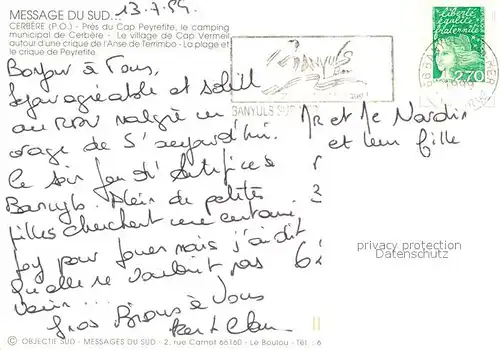 MESSAGE DU SUD...
13.7.99.
CERBÈRE (P.O.) - Près du Cap Peyrefite, le camping
municipal de Cerbère - Le village de Cap Vermeil
autour d'une crique de l'Anse de Terrimbo - La plage et
le crique de Peyrefite.
Bonjour à Tous,
Séjour agréable et soleil
au RDV malgré un
orage de 5' aujourd'hui.
Ce soir feu d'Artifices
Banyuls. Plein de petites
filles cherchent une certaine
pour jouer mais j'ai dit
qu'elle ne voulait pas
venir...
Gros Bisous à Vous
BANYULS
BANYULS SUR
liberté
égalité
fraternité
2,70
Mr et Me Nardin
et leur fille
privacy protection
Datenschutz
© OBJECTIF SUD - MESSAGES DU SUD - 2, rue Carnot 66160 - Le Boulou - Tél. : 6